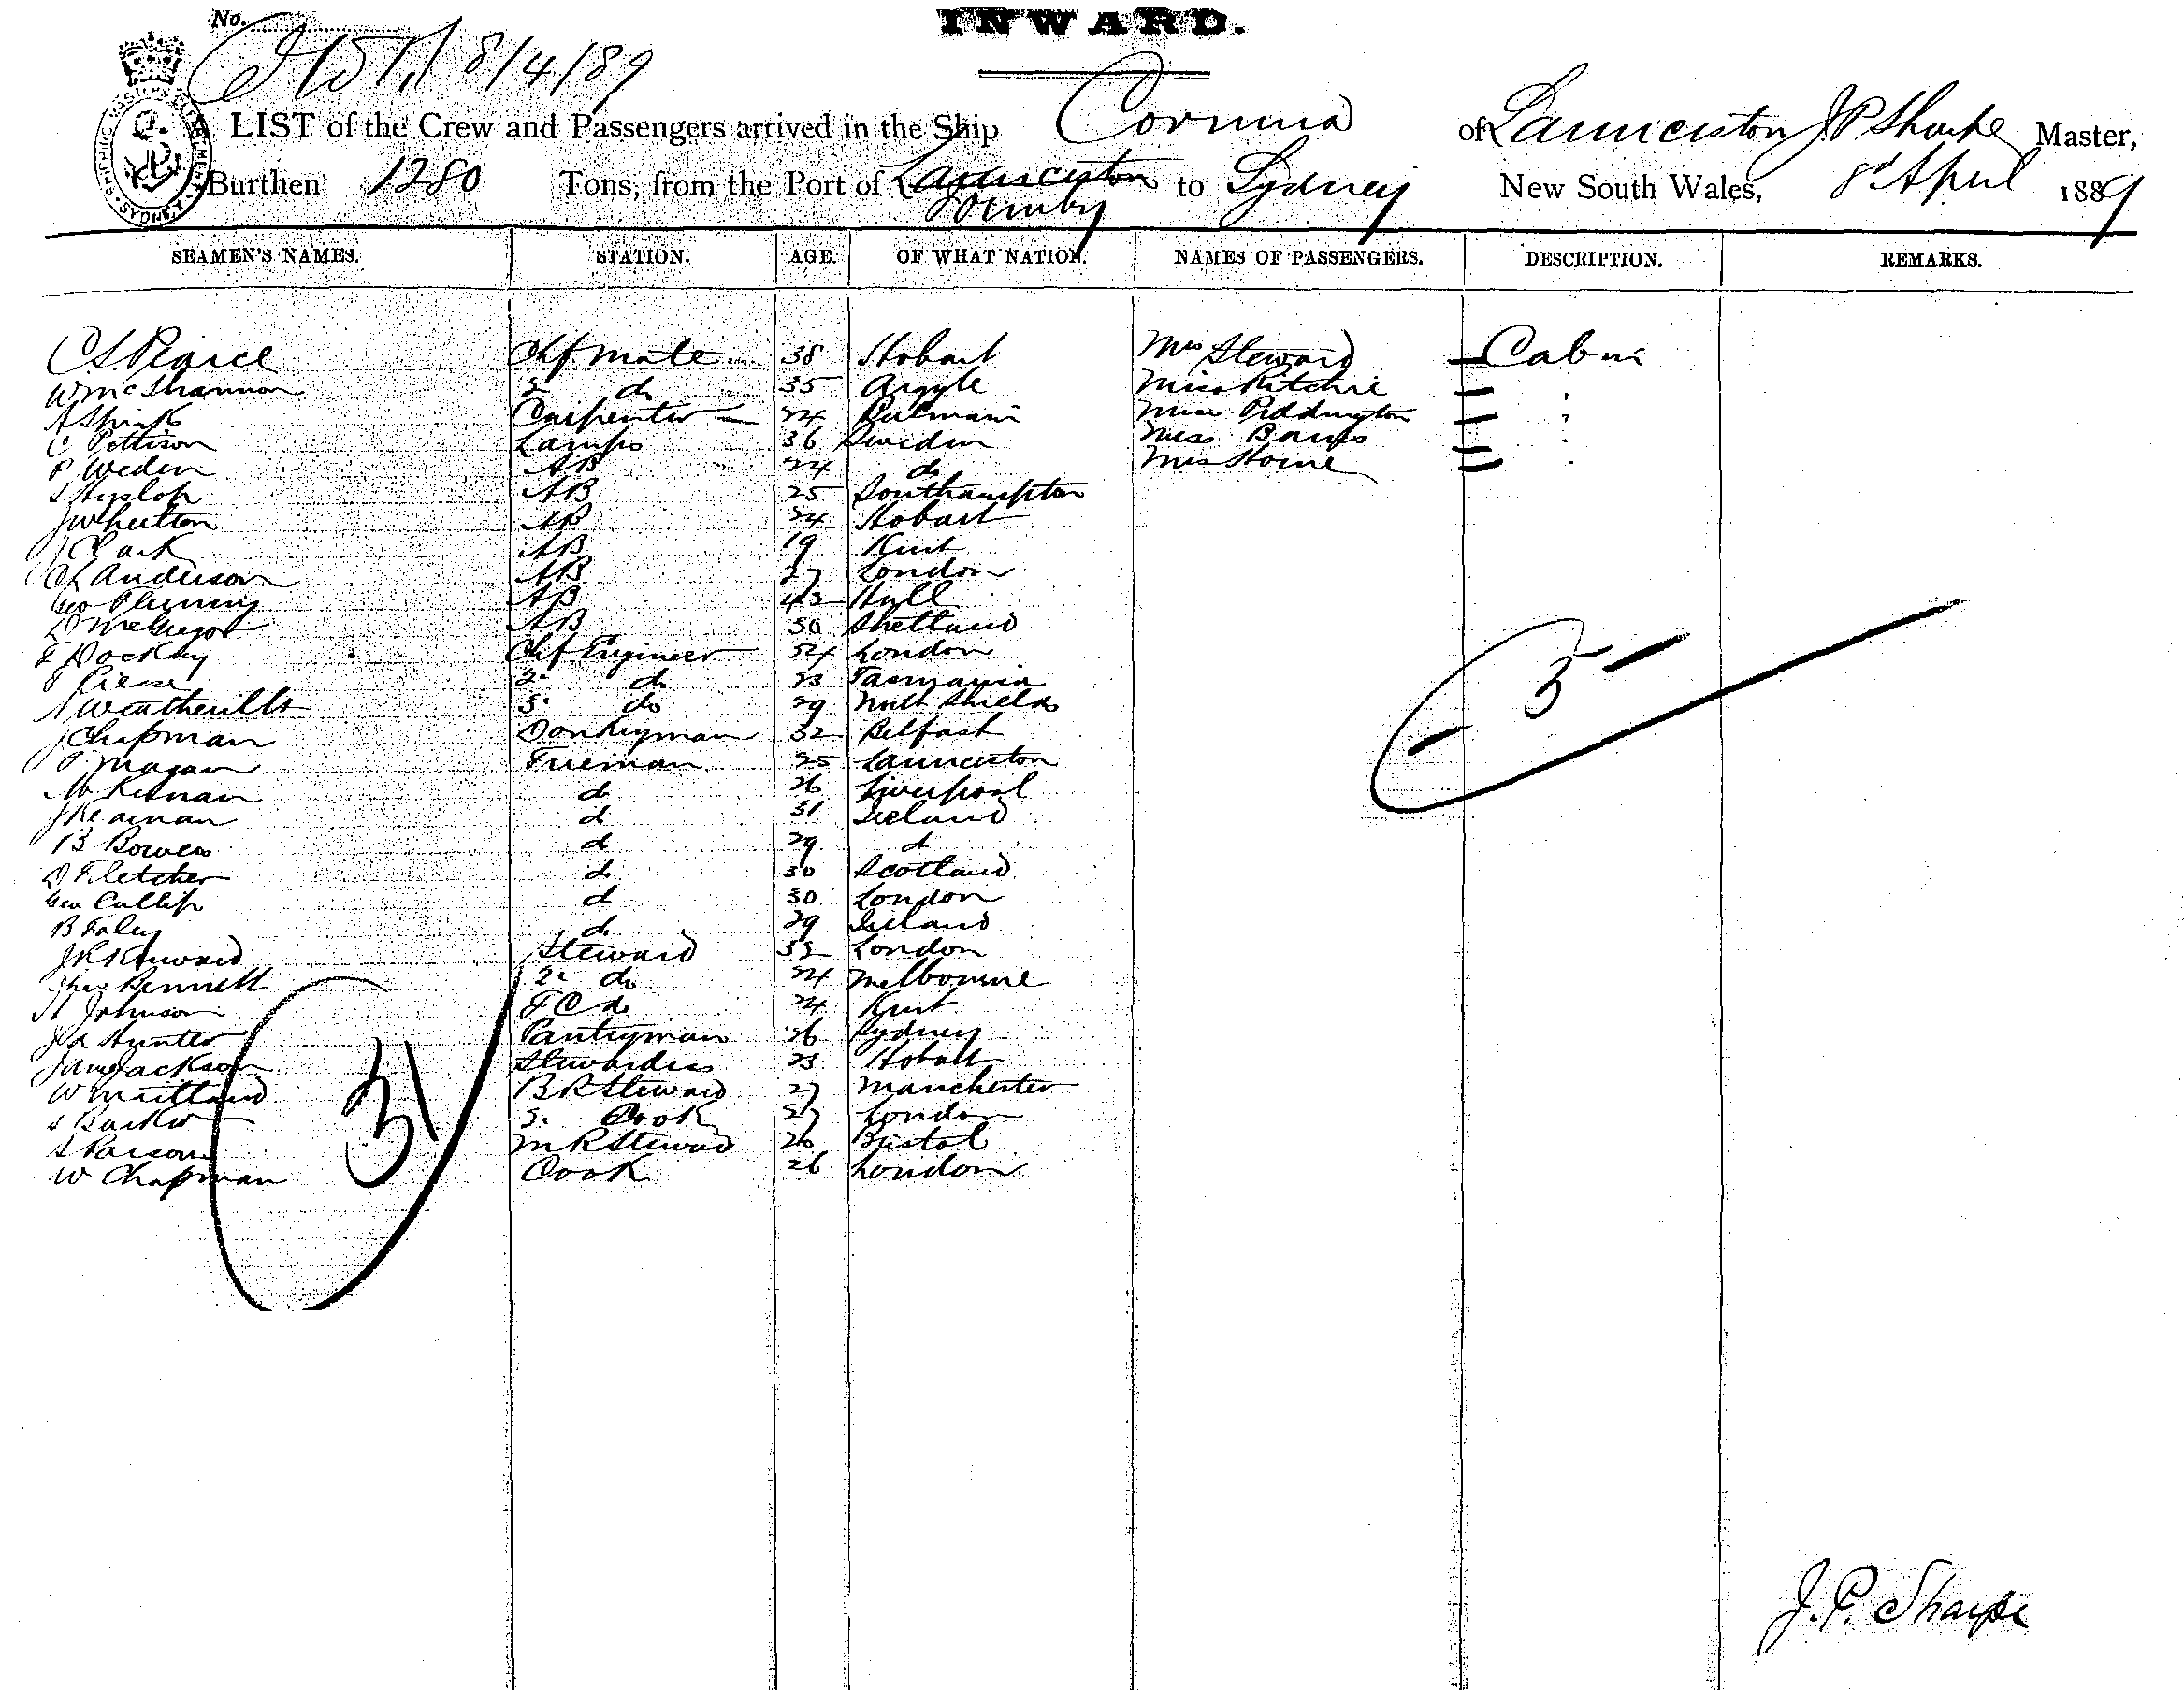 No.
INWARD.
8/4/89
A LIST of the Crew and Passengers arrived in the Ship Corinna of Launceston J P Sharpe Master,
Burthen 1280 Tons, from the Port of Launceston to Sydney New South Wales, 8 April 1889
SEAMEN'S NAMES. STATION. AGE. OF WHAT NATION. NAMES OF PASSENGERS. DESCRIPTION. REMARKS.
C S Pearce Chf Mate 38 Hobart Mrs Steward Cabin
W McShannon 2 do 35 Argyle Miss Ritchie
A Spink Carpenter 24 Balmain Miss Piddington
C Pettison Lamps 36 Sweden Miss
P Weden AB 24 do
Hyslop AB 25 Southampton
J Whutton AB 24 Hobart
J Clark AB 19 Kent
Anderson AB 27 London
Geo Fleming AB 43 Hull
D McGregor AB 50 Shetland
Dockray Chf Engineer 54 London
Piesse 2 do 23 Tasmania
Weatherilt 3 do 29 North Shields
J Chapman Donkeyman 32 Belfast
Magan Fireman 25 Launceston
Kernan d 26 Liverpool
J Kearnan d 31 Ireland
B Bowers d 29 d
D Fletcher d 30 Scotland
Geo Cullip d 30 London
B Foley d 29 Ireland
Steward 33 London
Chas Bennett 2 do 24 Melbourne
H Johnson F C do 24 Kent
Hunter Pantryman 26 Sydney
Jane Jackson Stewardess 23 Hobart
W Maitland B R Steward 27 Manchester
Barker 3. Cook 27 London
S Parsons M R Steward 20 Bristol
W Chapman Cook 26 London
5
31
J. P. Sharpe